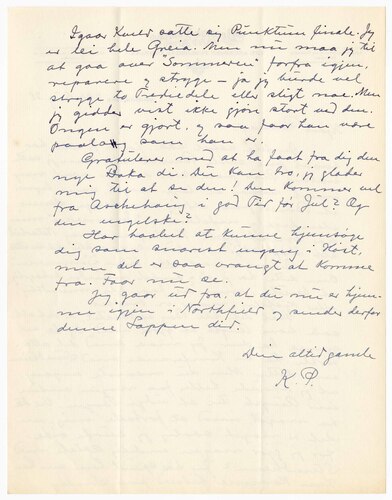 Igaar Kveld satte jeg Punktum finale. Jeg
er lei hele Greia. Men nu maa jeg til
at gaa over "Sommeren" forfra igjen,
reparere og stryge — ja jeg burde vel
stryge to Trediedele eller sligt noe. Men
jeg gidder vist ikke gjøre stort ved den.
Ongen er gjort, og saa faar han være
paala som han er.
Gratulerer med at ha faat fra dig den
nye Boka di. Du kan tro, jeg glæder
mig til at se den! Den kommer vel
fra Aschehoug i god Tid før Jul? Og
den engelske?
Har haabet at kunne hjemsøge
dig som snarest engang i Høst,
men det er saa vrangt at komme
fra. Faar nu se.
Jeg gaar ud fra, at du nu er hjem-
me igjen i Northfield og sender derfor
denne Lappen did.
Din altid gamle
K. P.